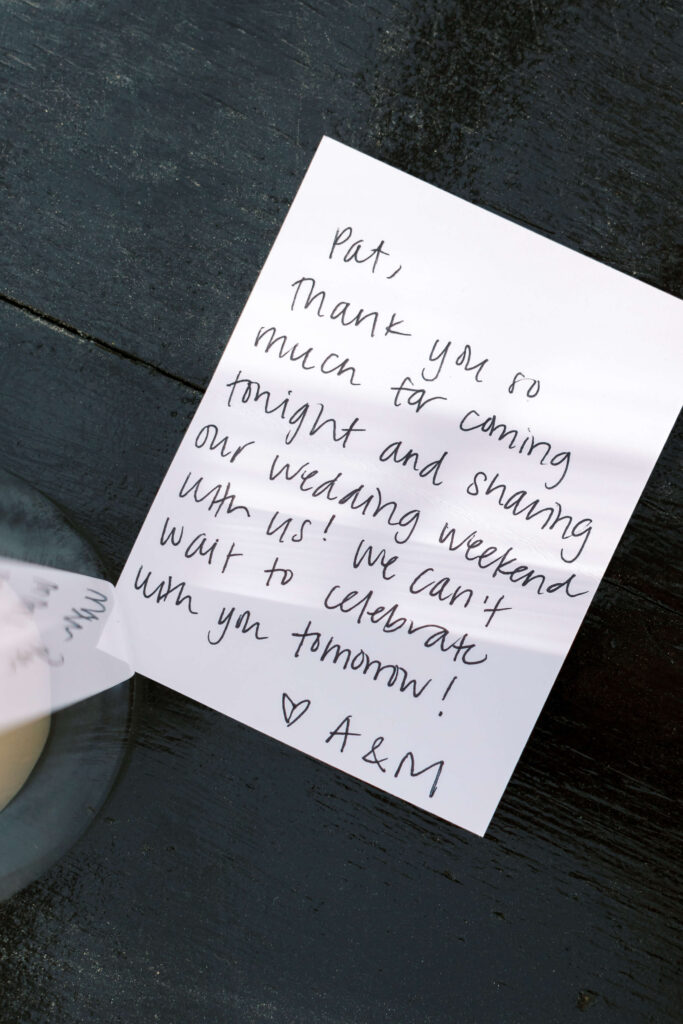 Pat,
Thank you so
much for coming
tonight and sharing
our wedding weekend
with us! We can't
wait to celebrate
with you tomorrow!
♡ A & M